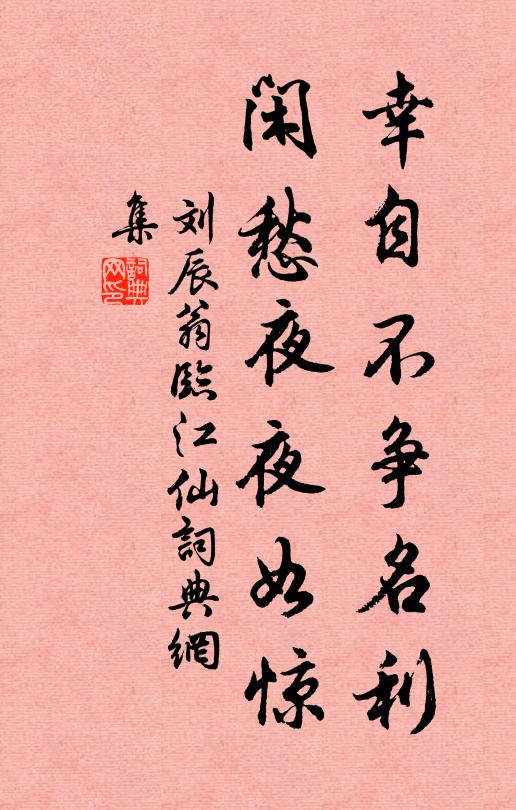 幸自不争名利
闲愁夜夜如惊
刘辰翁臨江仙詞典網
集
詞典网印